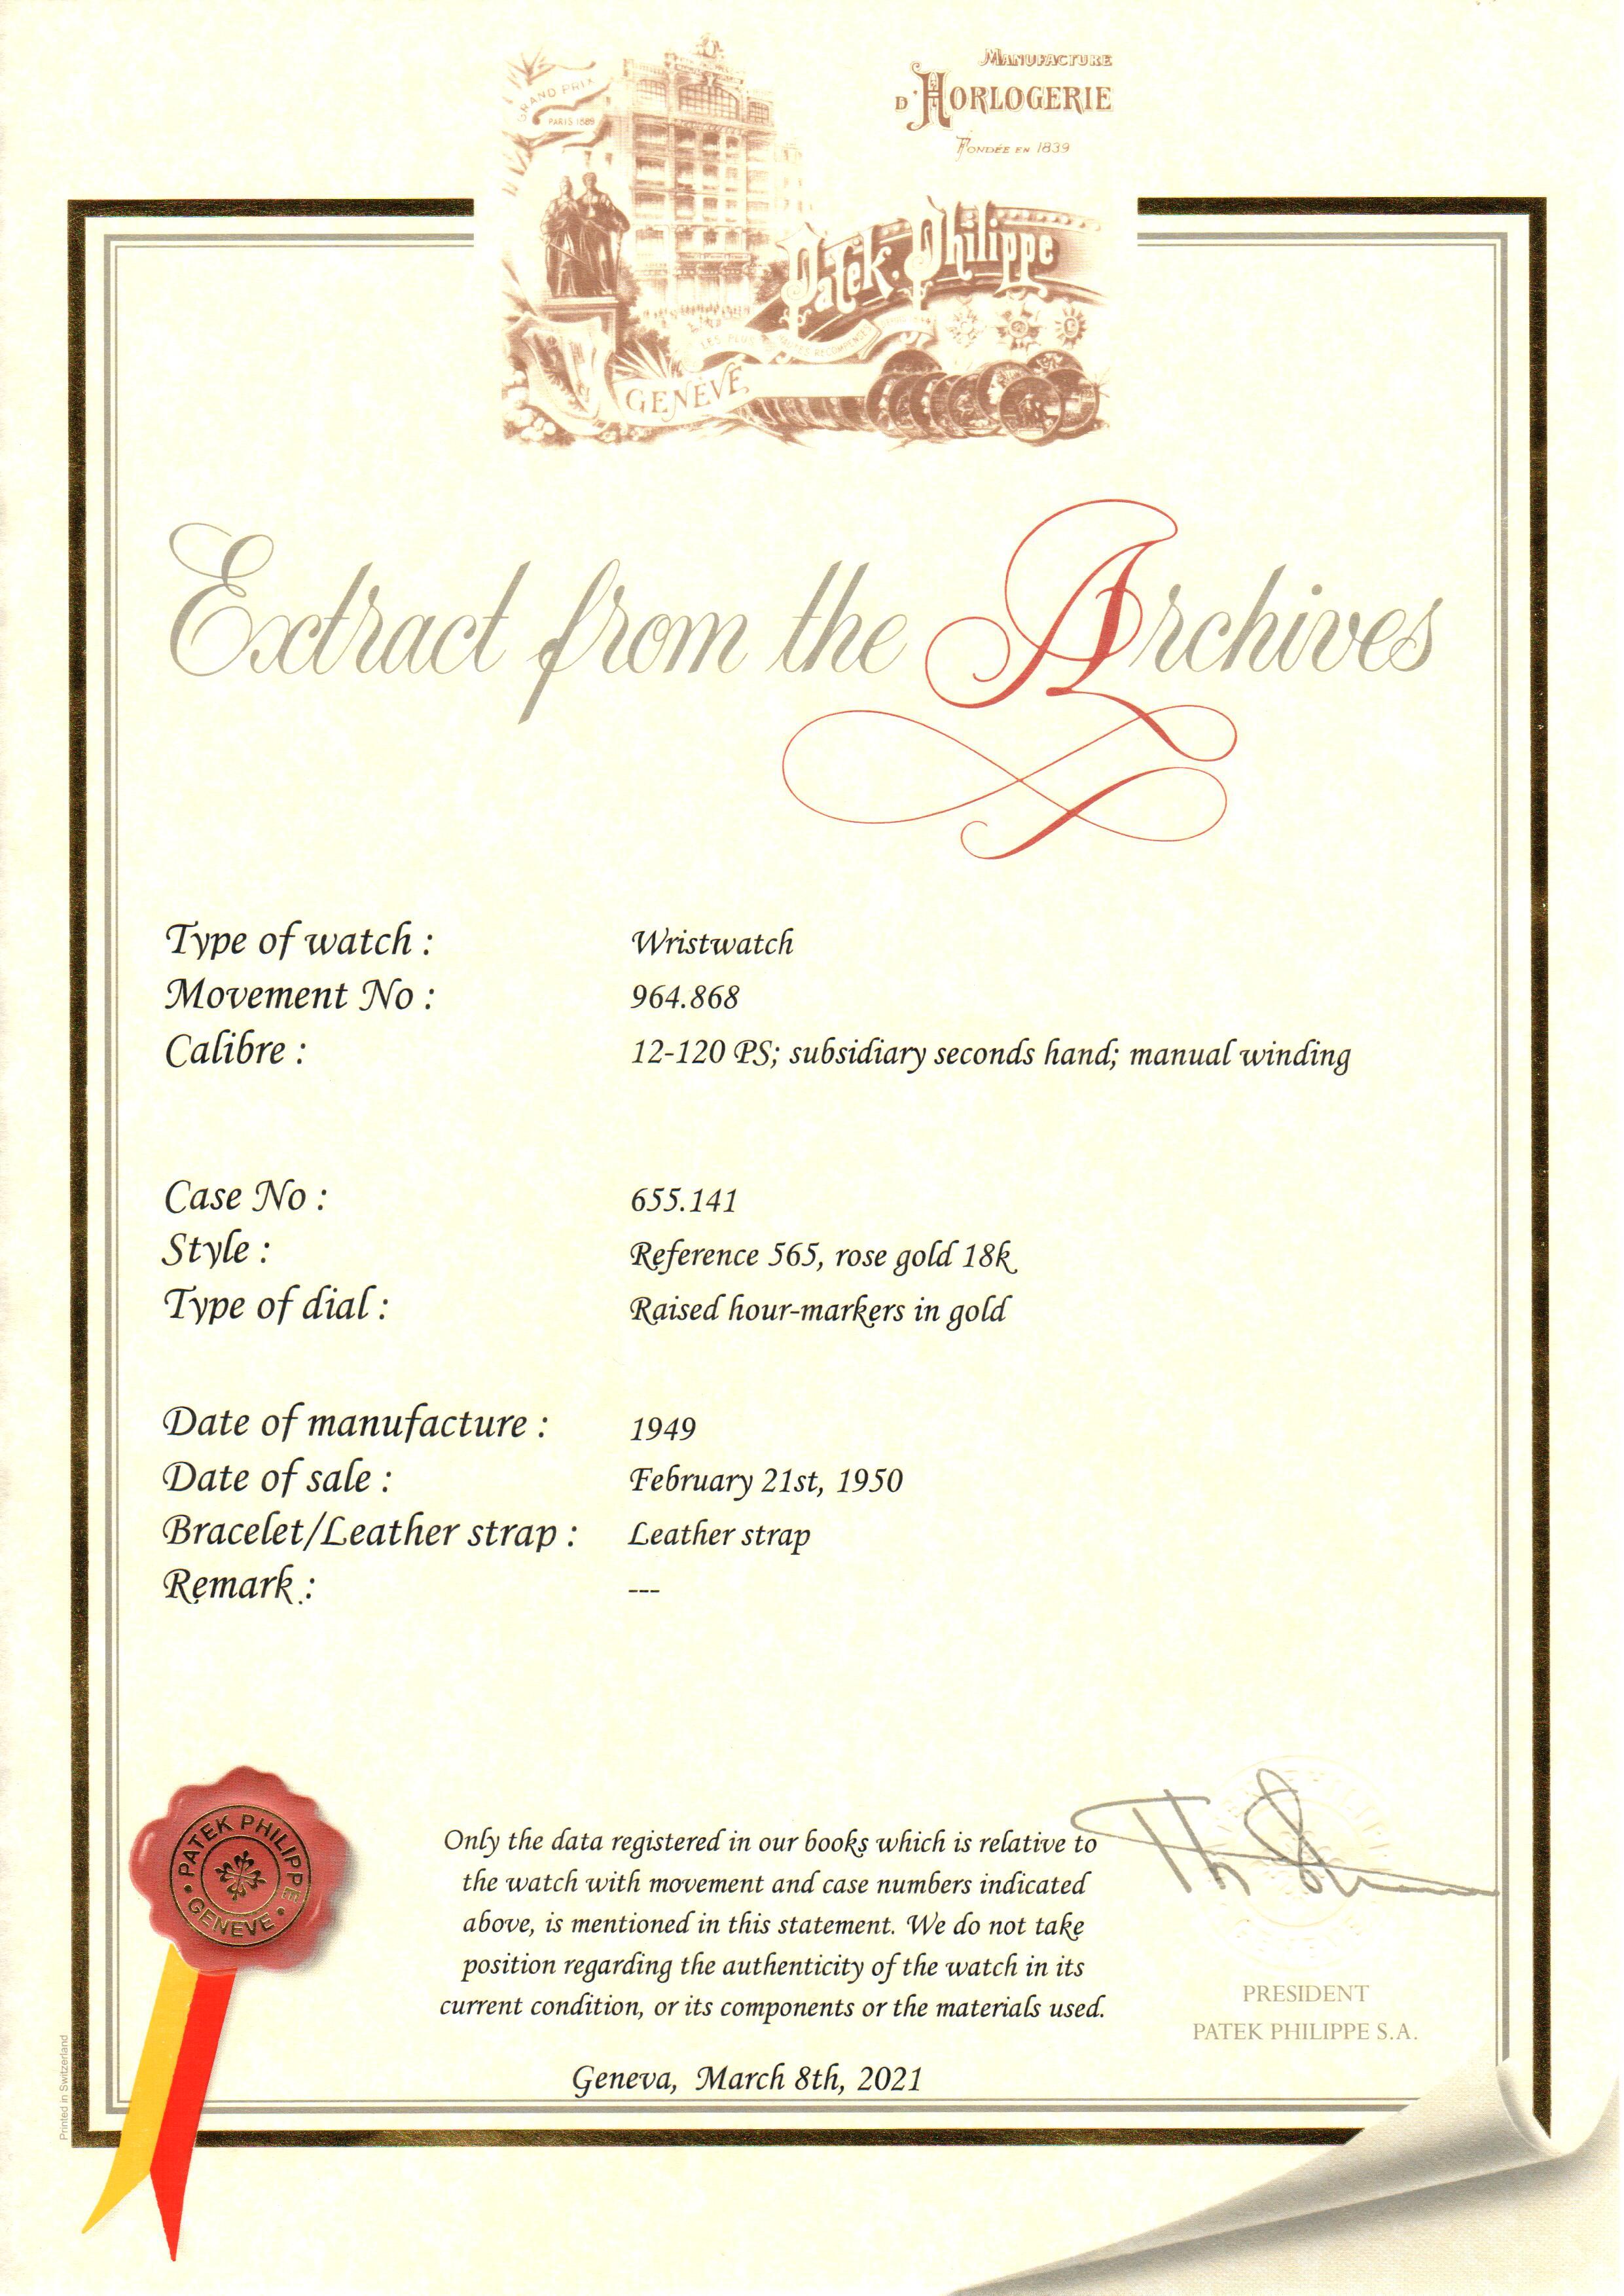 MANUFACTURE
D'HORLOGERIE
FONDÉE EN 1839
GRAND PRIX
PARIS 1889
Patek Philippe
LES PLUS HAUTES RECOMPENSES
GENÈVE
Extract from the Archives
Type of watch : Wristwatch
Movement No : 964.868
Calibre : 12-120 PS; subsidiary seconds hand; manual winding
Case No : 655.141
Style : Reference 565, rose gold 18k
Type of dial : Raised hour-markers in gold
Date of manufacture : 1949
Date of sale : February 21st, 1950
Bracelet/Leather strap : Leather strap
Remark : ---
PATEK PHILIPPE
GENEVE
Only the data registered in our books which is relative to
the watch with movement and case numbers indicated
above, is mentioned in this statement. We do not take
position regarding the authenticity of the watch in its
current condition, or its components or the materials used.
PRESIDENT
PATEK PHILIPPE S.A.
Geneva, March 8th, 2021
Printed in Switzerland